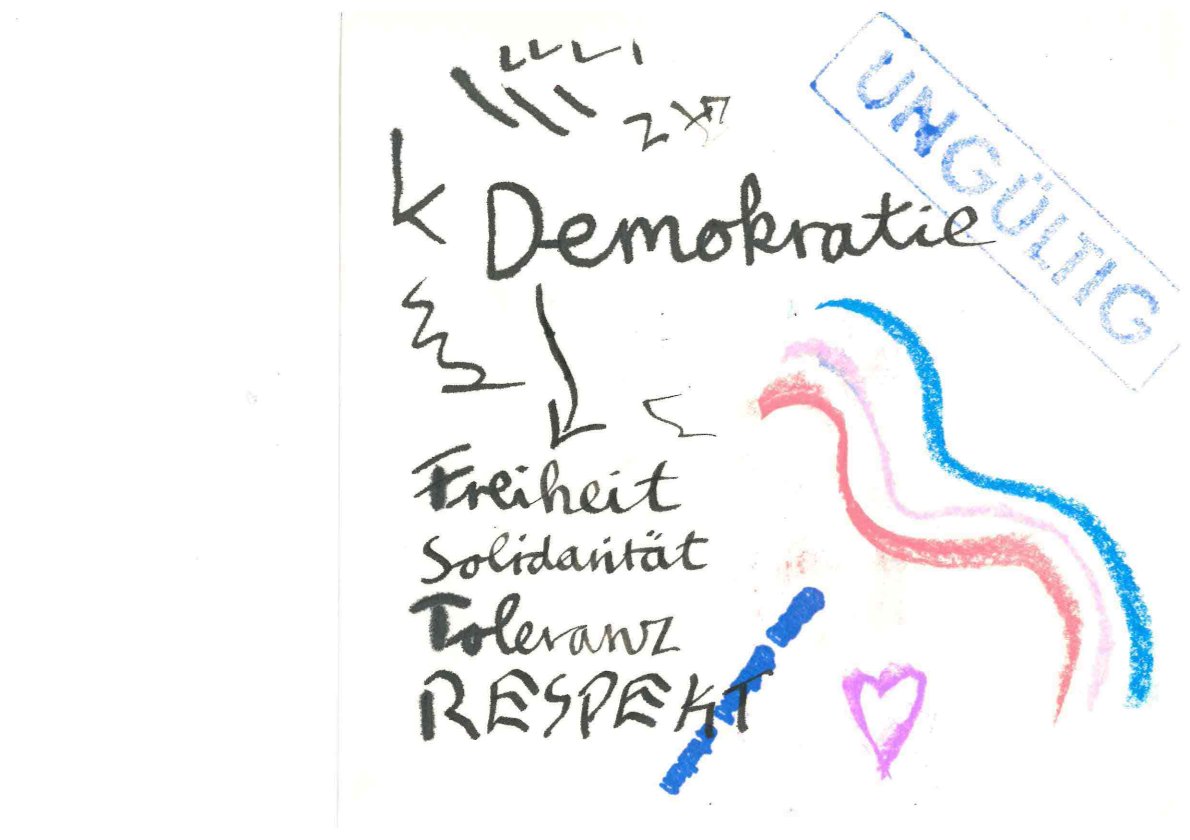 UNGÜLTIG
Demokratie
Freiheit
Solidarität
Toleranz
RESPEKT